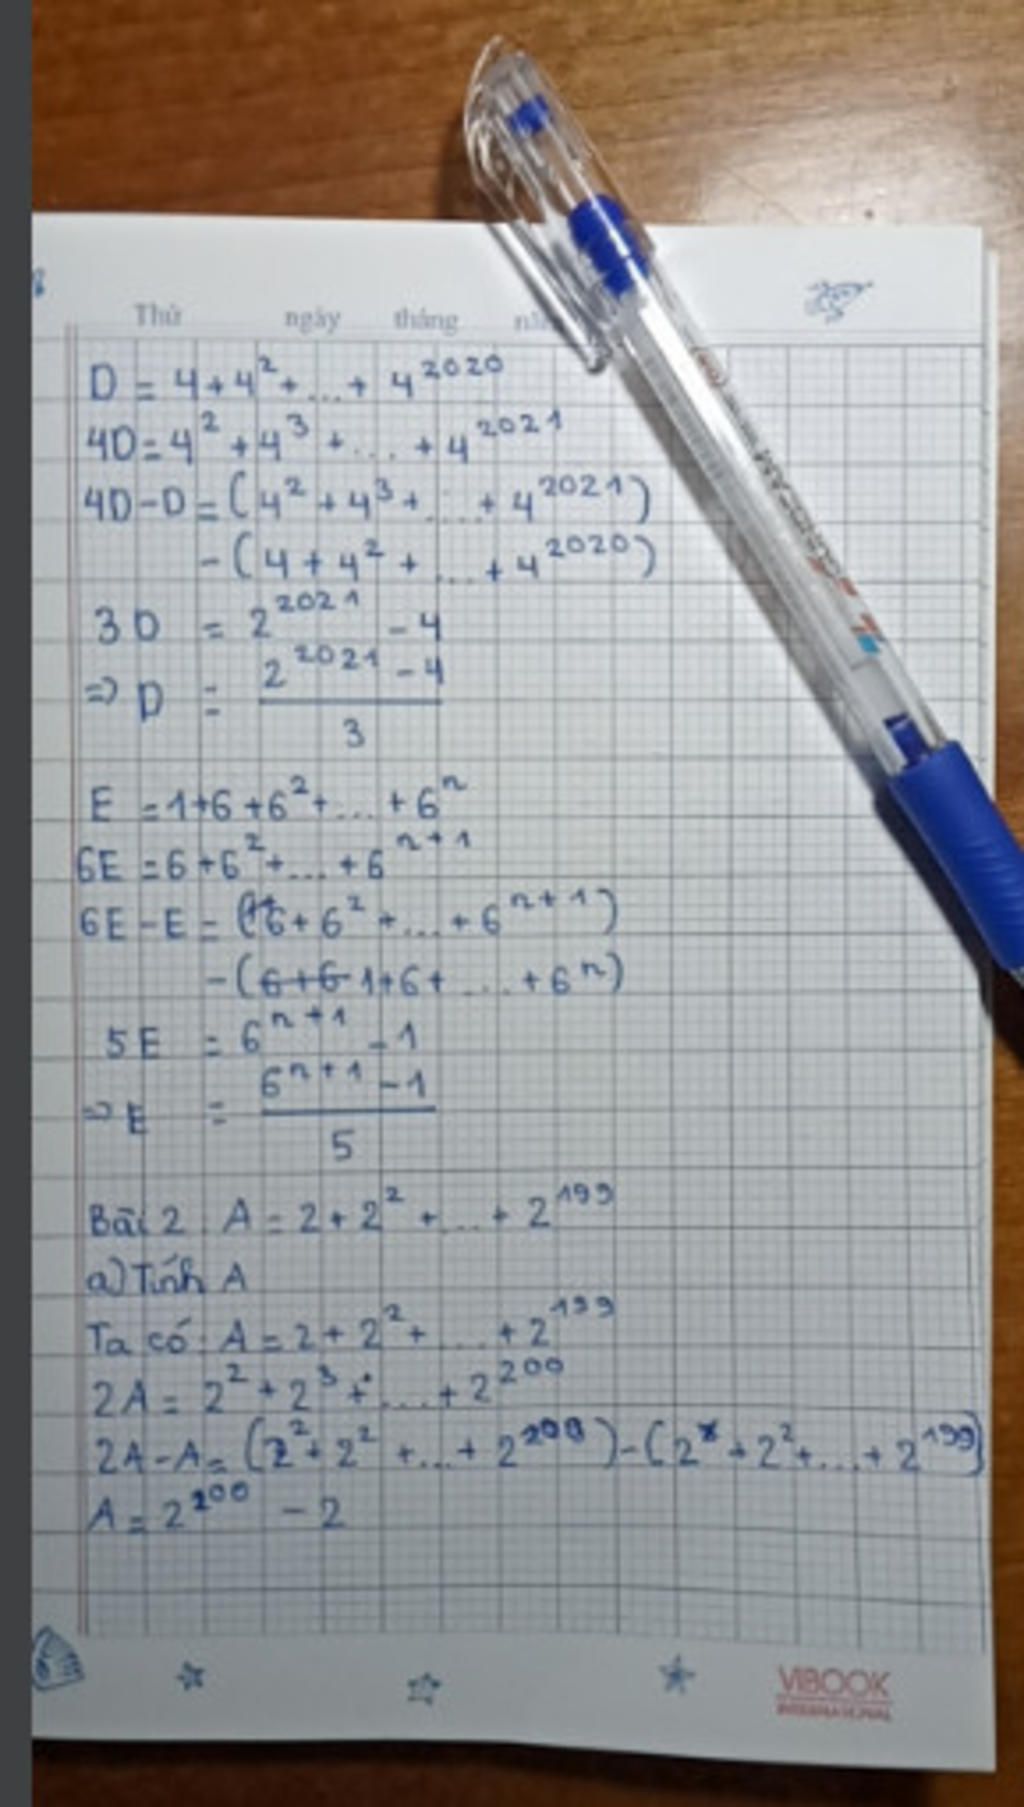 Thứ ngày tháng
D = 4 + 4² + ... + 4²⁰²⁰
4D = 4² + 4³ + ... + 4²⁰²¹
4D - D = (4² + 4³ + ... + 4²⁰²¹)
- (4 + 4² + ... + 4²⁰²⁰)
3D = 2²⁰²¹ - 4
=> D = (2²⁰²¹ - 4)/3
E = 1 + 6 + 6² + ... + 6ⁿ
6E = 6 + 6² + ... + 6ⁿ⁺¹
6E - E = (6 + 6² + ... + 6ⁿ⁺¹)
- (6+6 1 + 6 + ... + 6ⁿ)
5E = 6ⁿ⁺¹ - 1
=> E = (6ⁿ⁺¹ - 1)/5
Bài 2 A = 2 + 2² + ... + 2¹⁹⁹
a) Tính A
Ta có: A = 2 + 2² + ... + 2¹⁹⁹
2A = 2² + 2³ + ... + 2²⁰⁰
2A - A = (2² + 2² + ... + 2²⁰⁰) - (2 + 2² + ... + 2¹⁹⁹)
A = 2²⁰⁰ - 2
VIBOOK
INTERNATIONAL